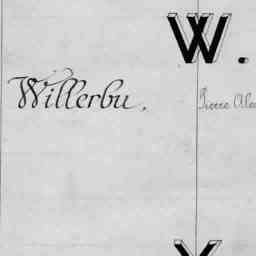 W.
Willerbu, Pierre Alex